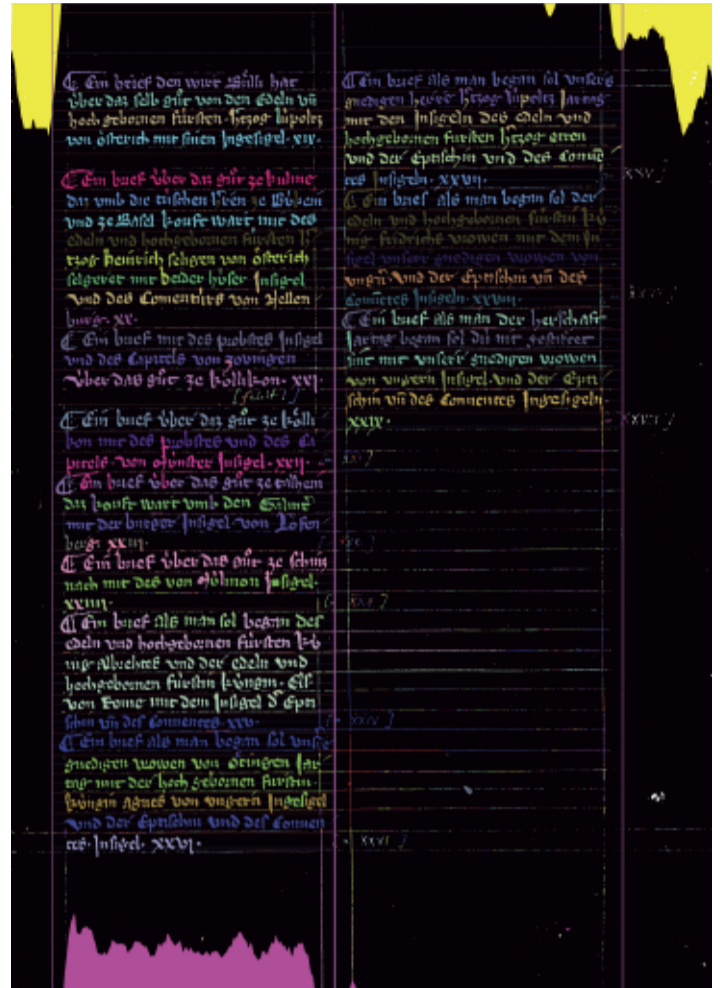 Ein brief den wirt Bůlli hat
vber daz selb gůt von den Edeln vn̄
hochgebornen fúrsten. Hertzog lúpoltz
von ősterich mit sinen Ingesigel. xix.
Ein brief vber daz gůt ze kulme
daz vmb die túschen h̓ren ze Búkein
vnd ze Basel kouft wart mit des
edeln vnd hochgebornen fúrsten h̓
tzog heinrich seligen von ősterich
selgeret mit beider húser Insigel
vnd des Comentúrs von Hellen
burg. xx.
Ein brief mit des probstes Insigel
vnd des Capitels von zovingen
vber das gůt ze kőllikon. xxi.
Ein brief vber daz gůt ze kőlli
kon mit des probstes vnd des Ca
pitels von Múnster Insigel. xxii.
Ein brief vber das gůt ze talhein
daz kouft wart vmb den
mit der burger Insigel von
berg. xxiii.
Ein brief vber das gůt ze schinz
nach mit des von Múlinon Insigel.
xxiiii.
Ein brief als man sol began des
edeln vnd hochgebornen fúrsten kú
nig Albrechtes vnd der edeln vnd
hochgebornen fúrstin kúngin. Els
von Rome mit dem Insigel d̓ Epti
schin vn̄ des Conuentes. xxv.
Ein brief als man began sol vnser
gnedigen vrowen von őtingen Jar
tag mit der hochgebornen fúrstin
kúngin Agnes von vngern Ingesigel
vnd der Eptischin vnd des Conuen
tes. Insigel. xxvi.
[. xxvi ]
Ein brief als man began sol vnsers
gnedigen herren h̓tzog lúpoltz Jartag
mit den Insigeln des Edeln vnd
hochgebornen fúrsten h̓tzog otten
vnd der Eptischin vnd des Conuē
tes Insigeln. xxvii.
Ein brief als man began sol der
edeln vnd hochgebornen fúrstin kú
nig fridrichs vrowen mit dem In
sigel vnser gnedigen vrowen von
vngn̄ vnd der Eptischin vn̄ des
Conuentes Insigeln. xxviii.
Ein brief als man der herschaft
Jartag began sol die mit gestiftet
sint mit vnser gnedigen vrowen
von vngern Insigel. vnd der Epti
schin vn̄ des Conuentes Ingesigeln
xxix.